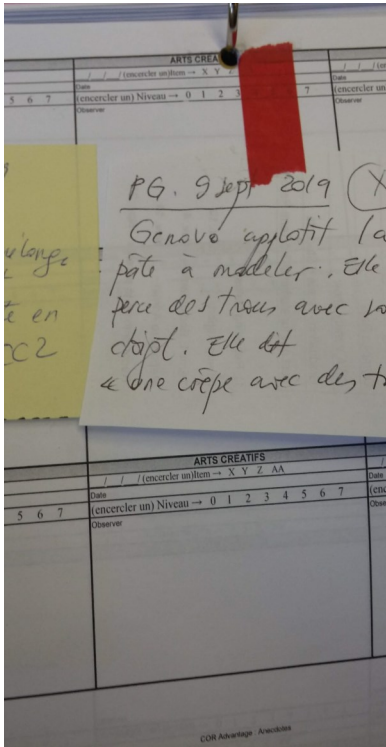 ARTS CREA
/ / / (encercler un)Item → X Y Z
Date
5 6 7
(encercler un) Niveau → 0 1 2 3 7
(encercler un
Observer
PG. 9 sept 2019 X
Genova applatit la
pâte à modeler. Elle
perce des trous avec
doigt. Elle dit
« une crêpe avec des
en
CC2
ARTS CREATIFS
/ / / (encercler un)Item → X Y Z AA
Date
Date
5 6 7
(encercler un) Niveau → 0 1 2 3 4 5 6 7
Observer
COR Advantage : Anecdotes